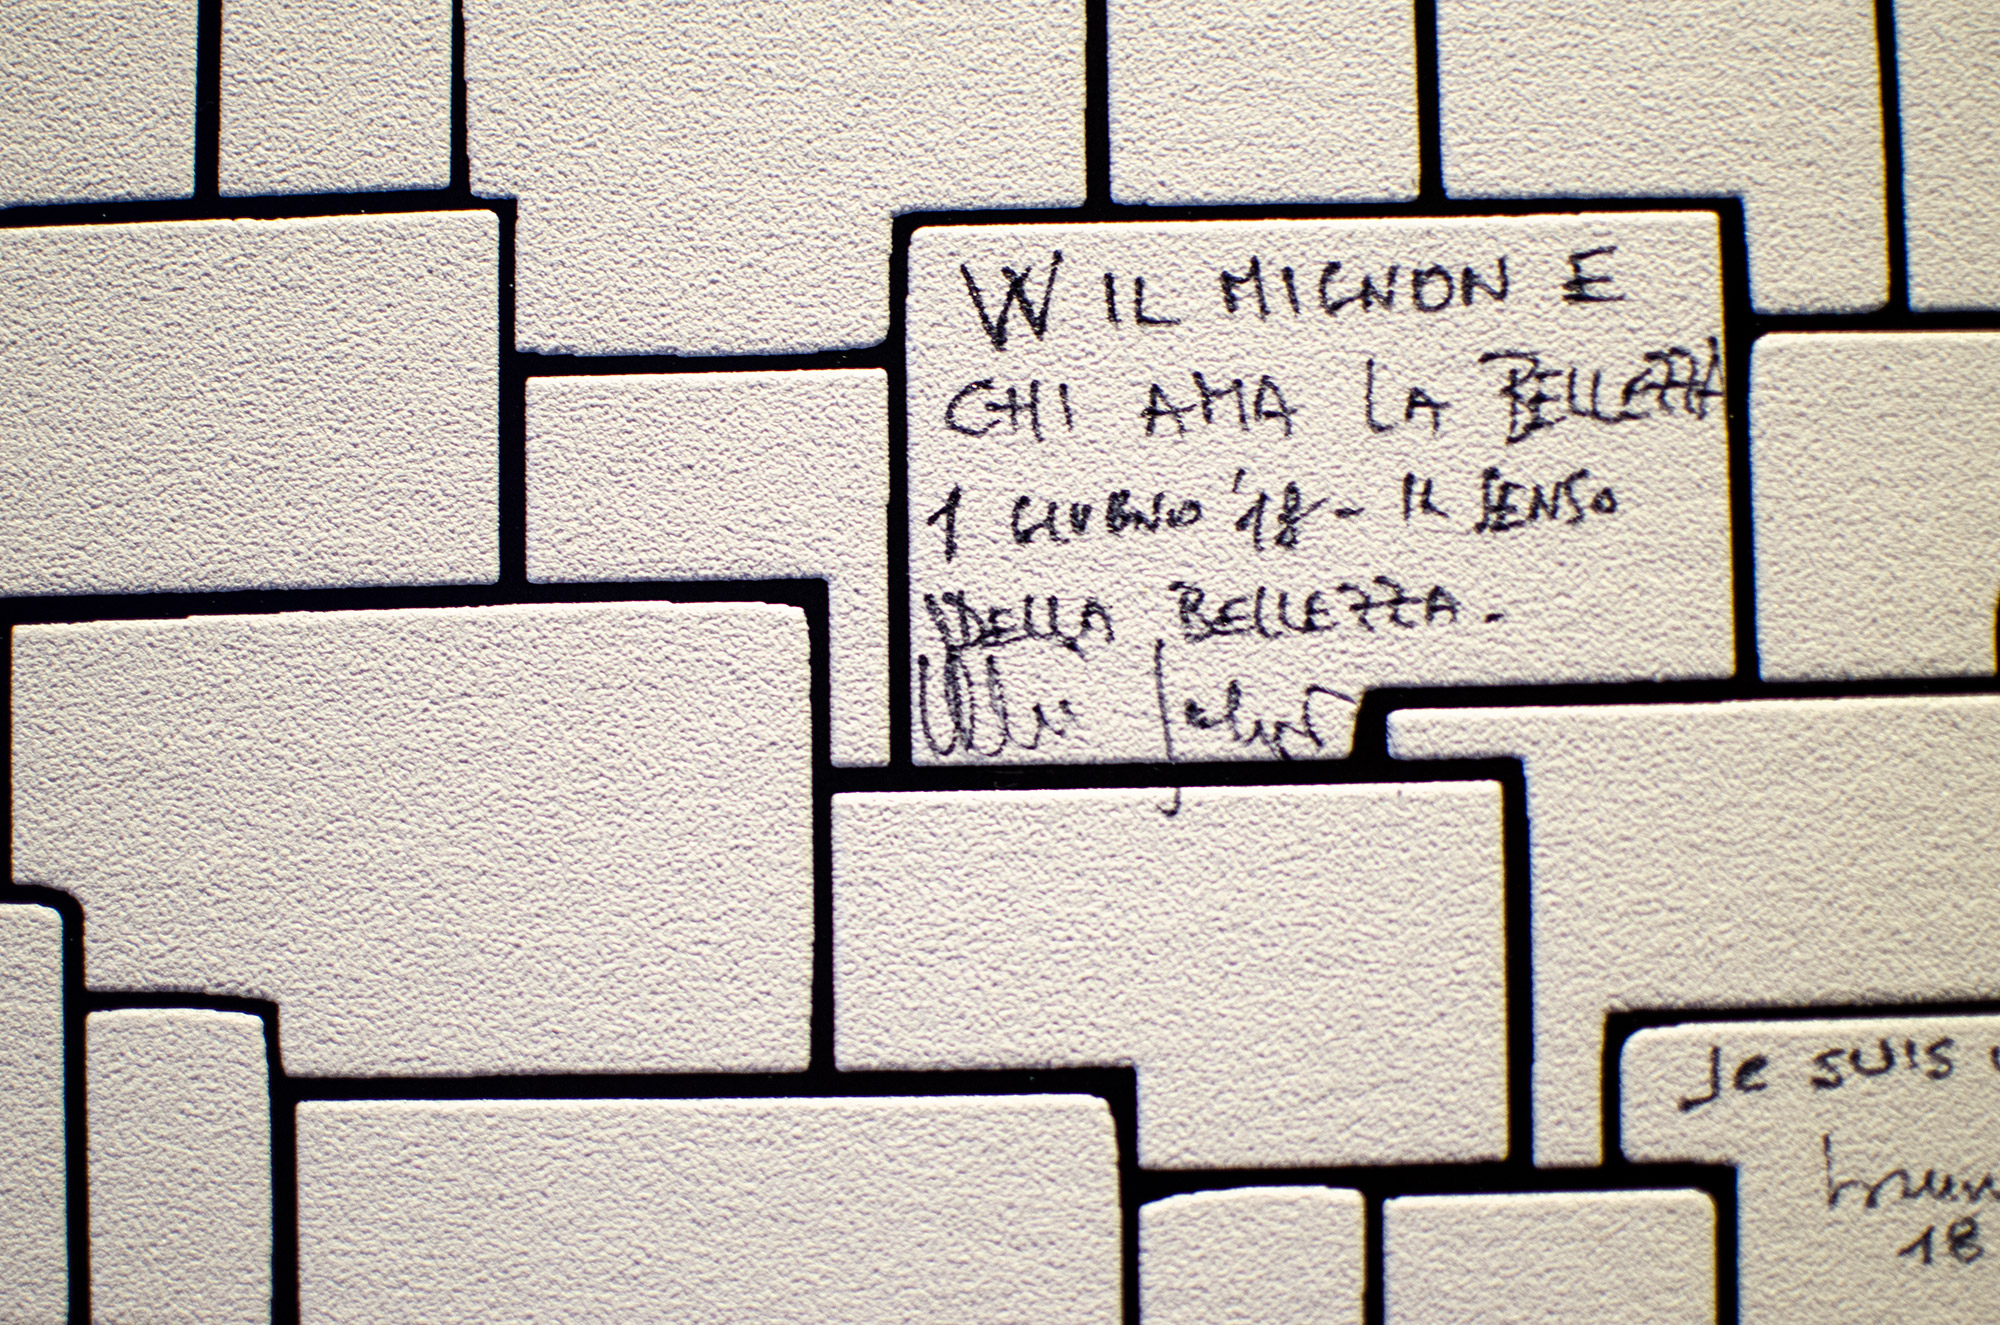 W IL MIGNON E
CHI AMA LA BELLEZZA
1 GIUGNO '18 - IL SENSO
DELLA BELLEZZA.
Je suis
18